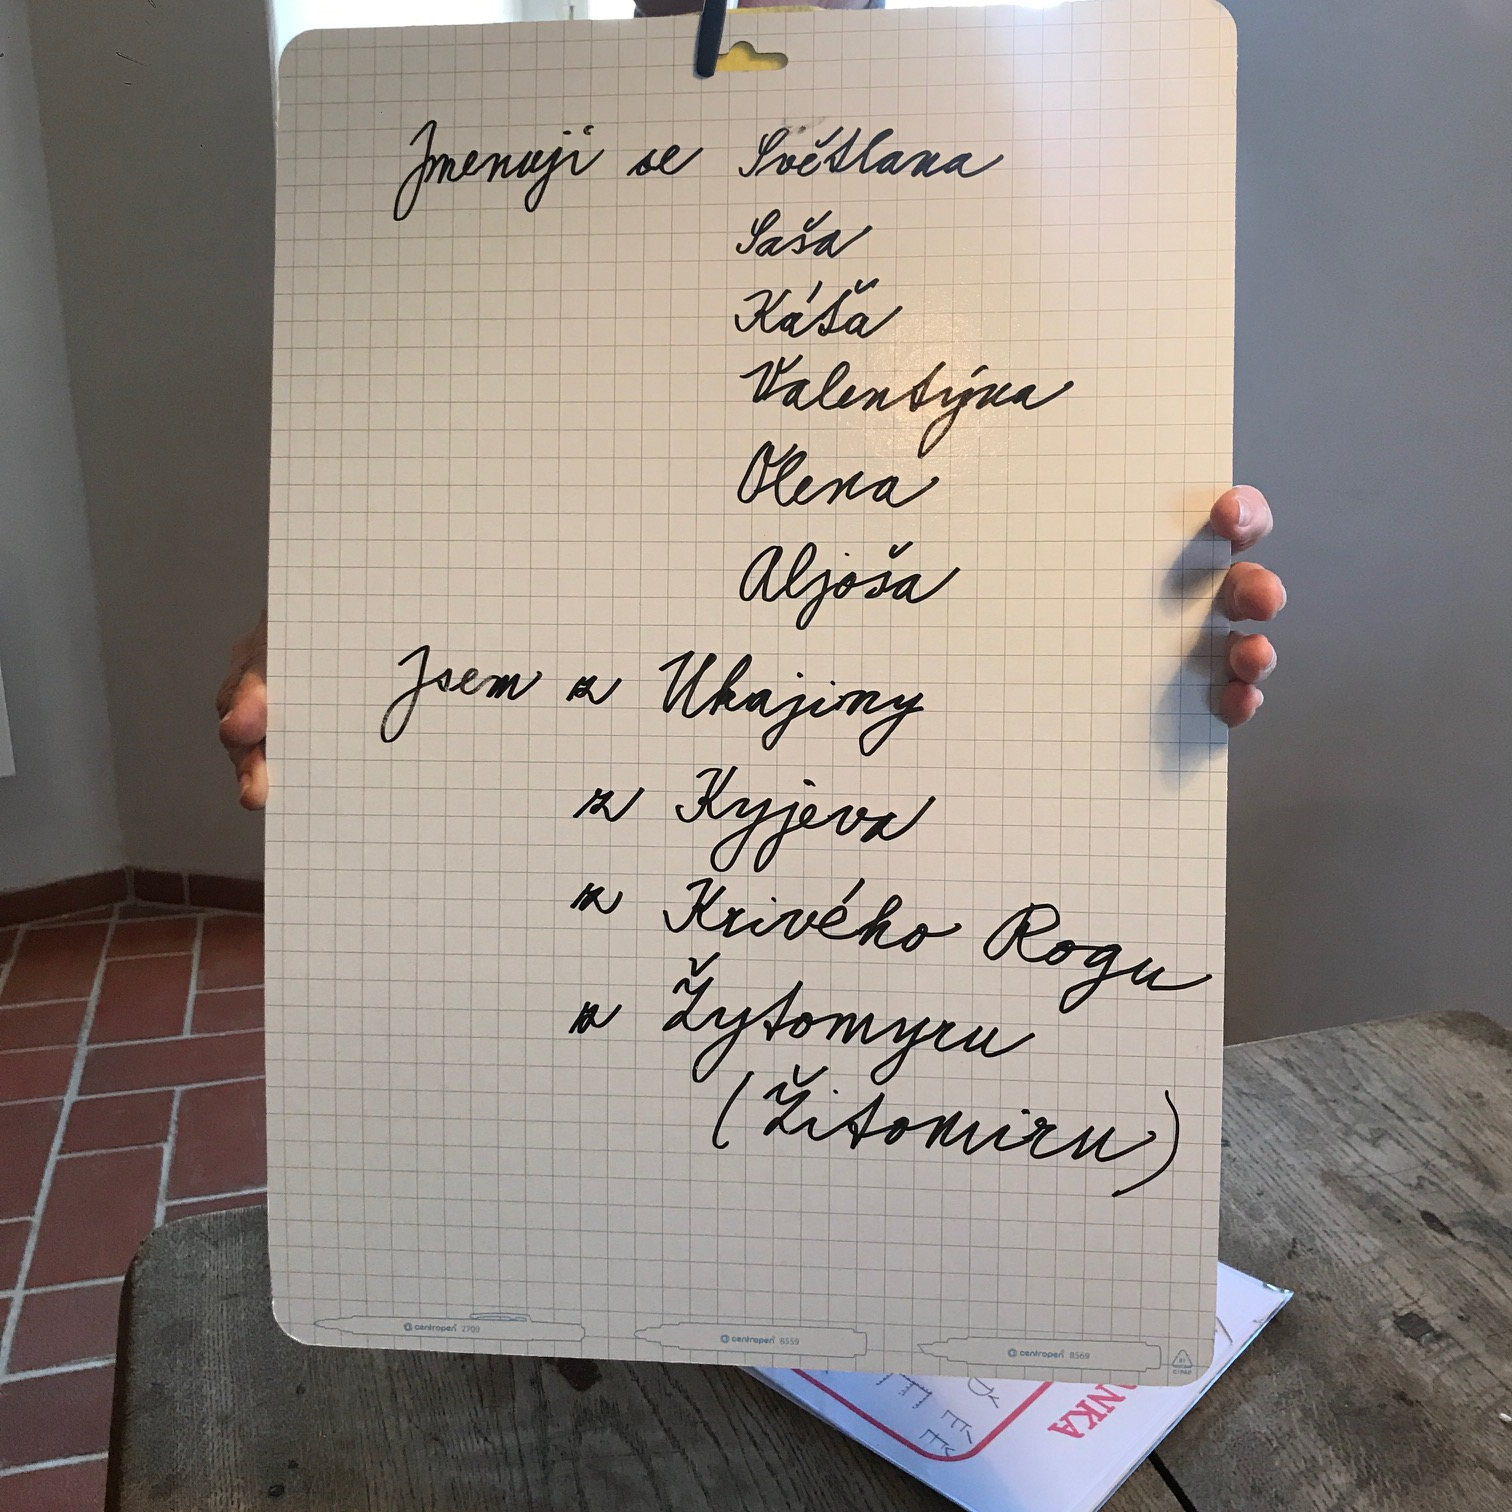 Jmenuji se Světlana
Saša
Káťa
Valentýna
Olena
Aljoša
Jsem z Ukajiny
z Kyjeva
z Krivého Rogu
z Žytomyru
(Žitomiru)
centropen 2709
centropen 8559
centropen 8569
81
C/PAP
NKA